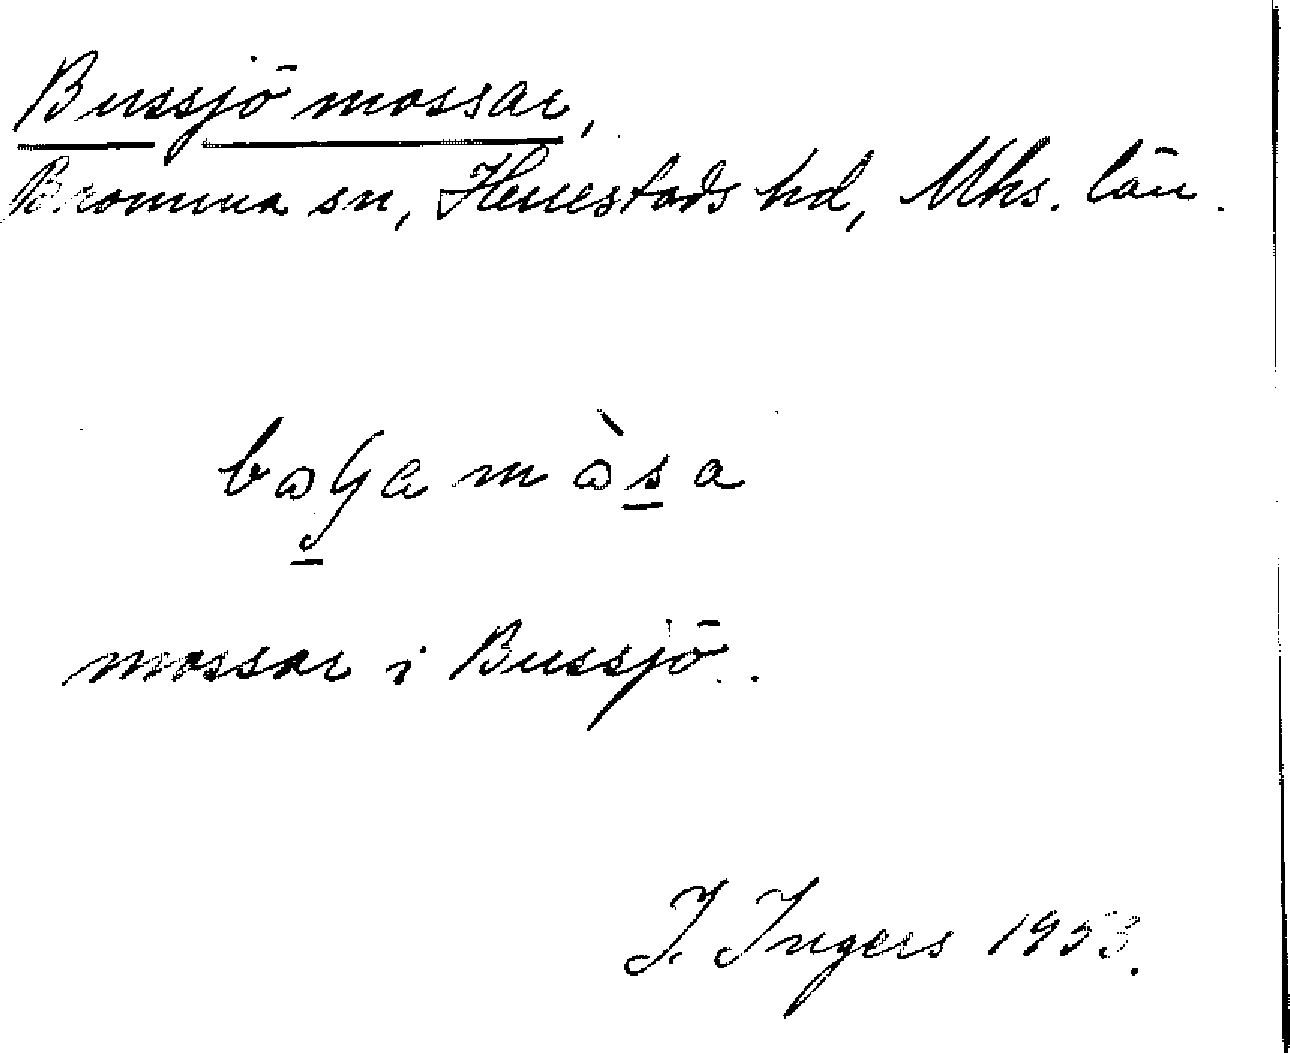 Bussjö mossar,
Bromma sn, Herrestads hd, Mhs. län.
mossar i Bussjö.
I. Ingers 1953.